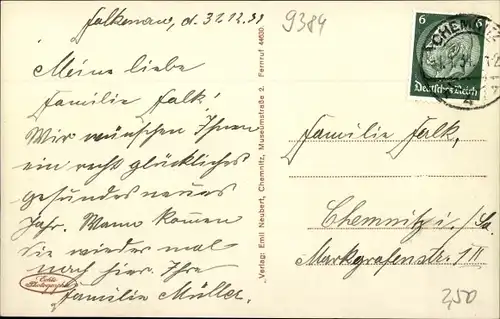 Falkenau, d. 31.12.31
9384
Meine liebe
Familie Falk!
Wir wünschen Ihnen
ein recht glückliches
gesundes neues
Jahr. Wann kommen
Sie wieder mal
nach hier. Ihre
Familie Müller.
Echte
Photographie
Verlag: Emil Neubert, Chemnitz, Museumstraße 2. Fernruf 44630.
6
6
Deutsches Reich
CHEMNITZ
Familie Falk,
Chemnitz i./Sa.
Markgrafenstr. 1 II
2,50